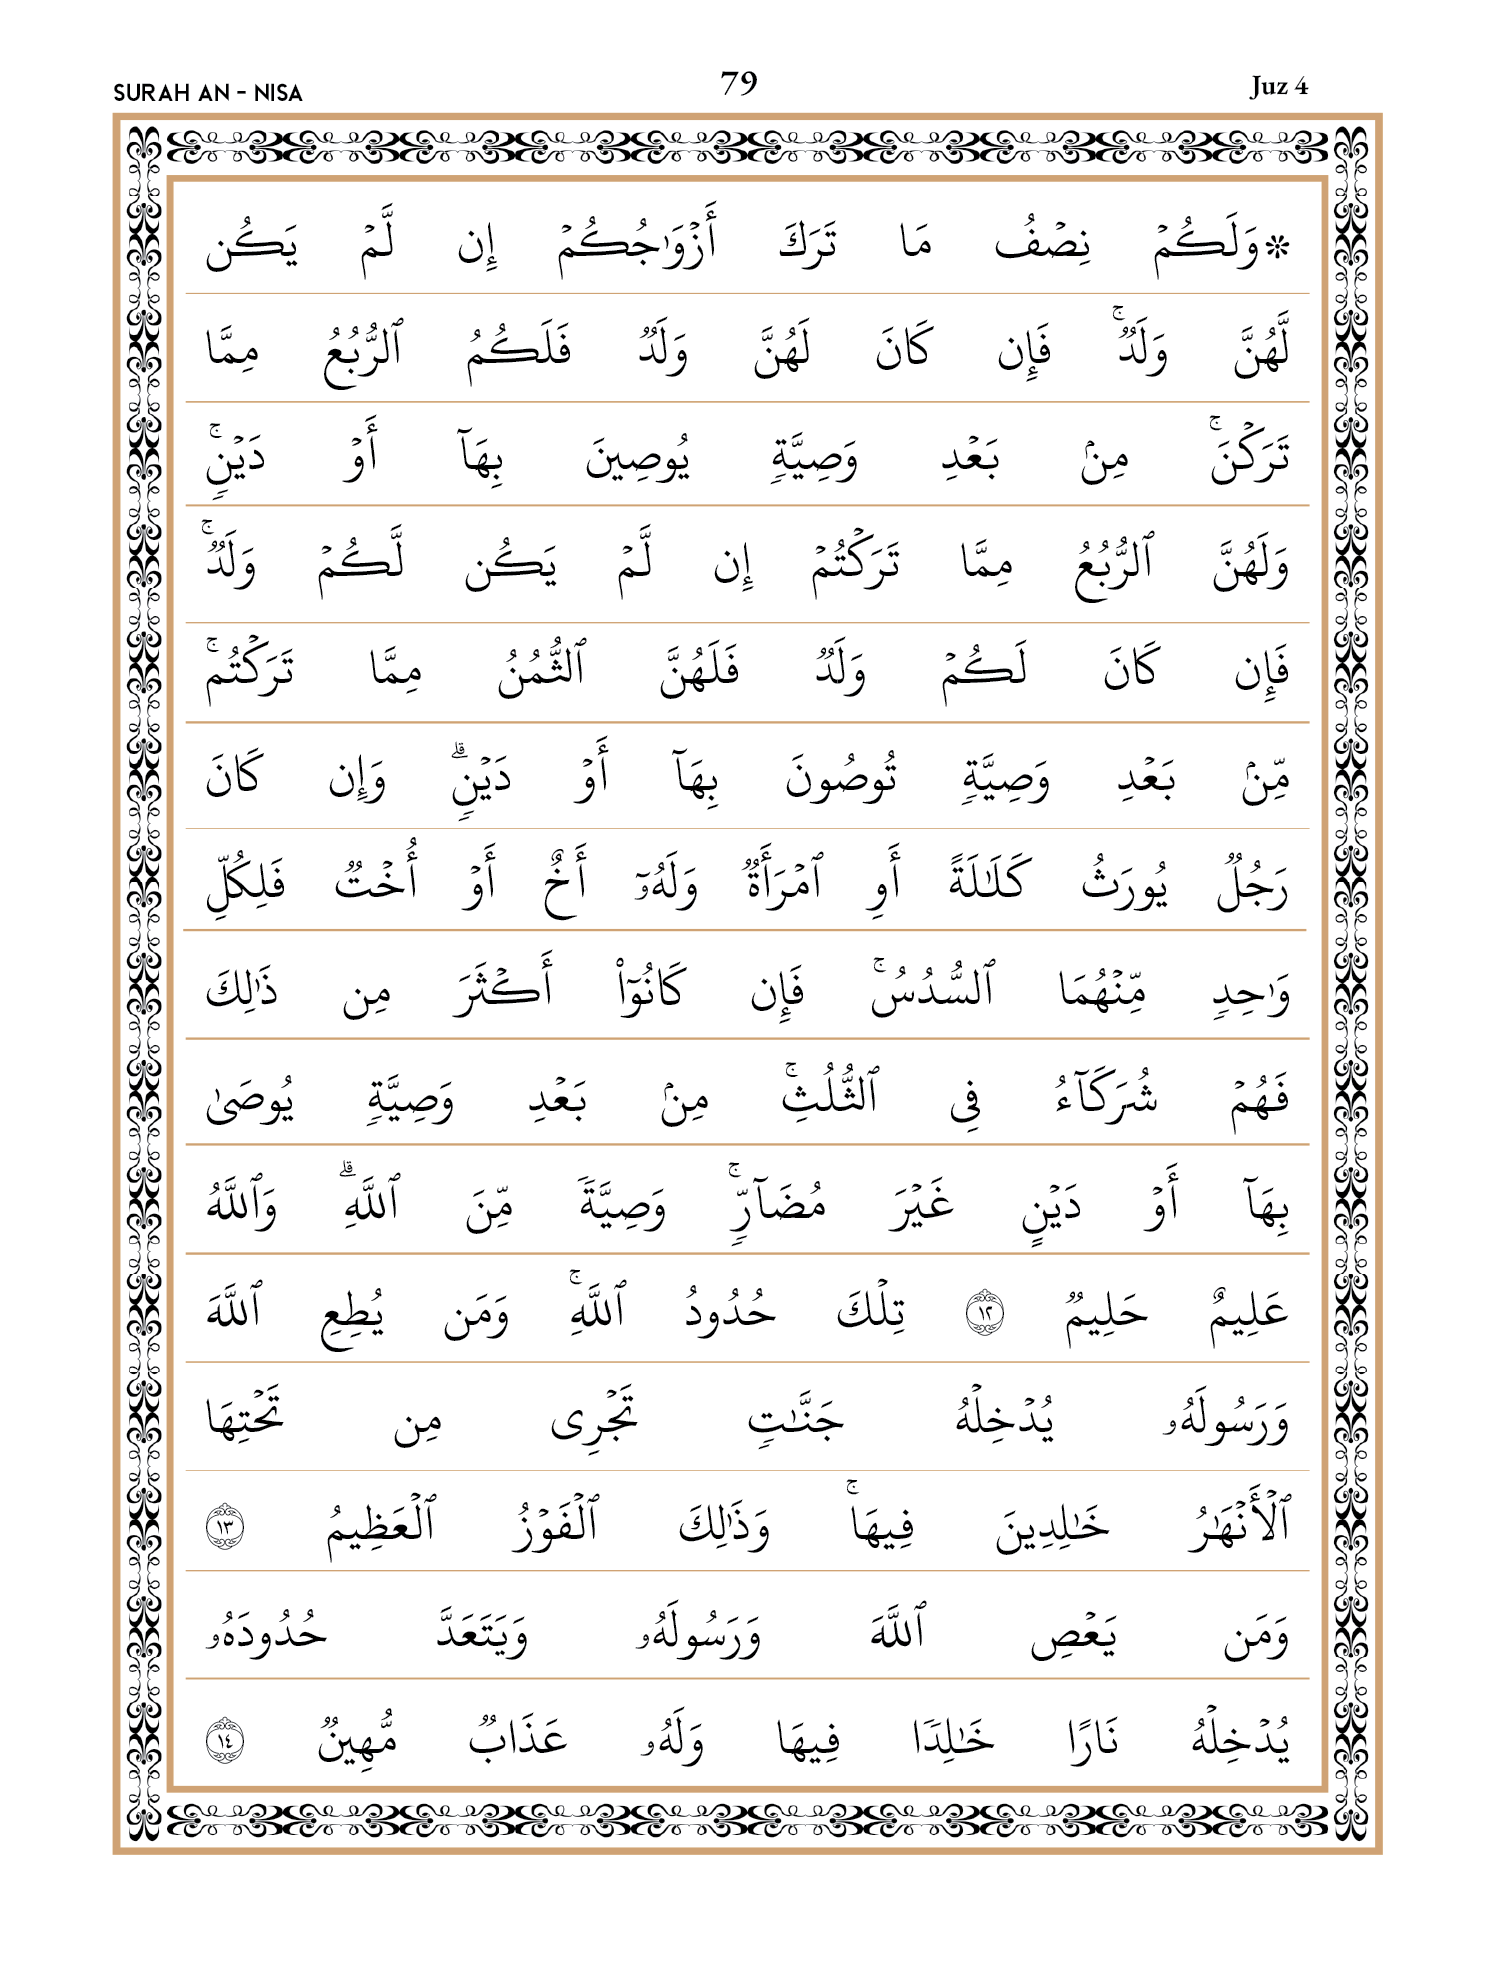 SURAH AN - NISA 79 Juz 4
۞وَلَكُمۡ نِصۡفُ مَا تَرَكَ أَزۡوَٰجُكُمۡ إِن لَّمۡ يَكُن
لَّهُنَّ وَلَدٌۚ فَإِن كَانَ لَهُنَّ وَلَدٌ فَلَكُمُ ٱلرُّبُعُ مِمَّا
تَرَكۡنَۚ مِنۢ بَعۡدِ وَصِيَّةٍ يُوصِينَ بِهَآ أَوۡ دَيۡنٍۚ
وَلَهُنَّ ٱلرُّبُعُ مِمَّا تَرَكۡتُمۡ إِن لَّمۡ يَكُن لَّكُمۡ وَلَدٌۚ
فَإِن كَانَ لَكُمۡ وَلَدٌ فَلَهُنَّ ٱلثُّمُنُ مِمَّا تَرَكۡتُمۚ
مِّنۢ بَعۡدِ وَصِيَّةٍ تُوصُونَ بِهَآ أَوۡ دَيۡنٍۗ وَإِن كَانَ
رَجُلٌ يُورَثُ كَلَٰلَةً أَوِ ٱمۡرَأَةٌ وَلَهُۥٓ أَخٌ أَوۡ أُخۡتٌ فَلِكُلِّ
وَٰحِدٍ مِّنۡهُمَا ٱلسُّدُسُۚ فَإِن كَانُوٓاْ أَكۡثَرَ مِن ذَٰلِكَ
فَهُمۡ شُرَكَآءُ فِي ٱلثُّلُثِۚ مِنۢ بَعۡدِ وَصِيَّةٍ يُوصَىٰ
بِهَآ أَوۡ دَيۡنٍ غَيۡرَ مُضَآرٍّۚ وَصِيَّةً مِّنَ ٱللَّهِۗ وَٱللَّهُ
عَلِيمٌ حَلِيمٌ ١٢ تِلۡكَ حُدُودُ ٱللَّهِۚ وَمَن يُطِعِ ٱللَّهَ
وَرَسُولَهُۥ يُدۡخِلۡهُ جَنَّٰتٍ تَجۡرِي مِن تَحۡتِهَا
ٱلۡأَنۡهَٰرُ خَٰلِدِينَ فِيهَاۚ وَذَٰلِكَ ٱلۡفَوۡزُ ٱلۡعَظِيمُ ١٣
وَمَن يَعۡصِ ٱللَّهَ وَرَسُولَهُۥ وَيَتَعَدَّ حُدُودَهُۥ
يُدۡخِلۡهُ نَارًا خَٰلِدًا فِيهَا وَلَهُۥ عَذَابٌ مُّهِينٌ ١٤